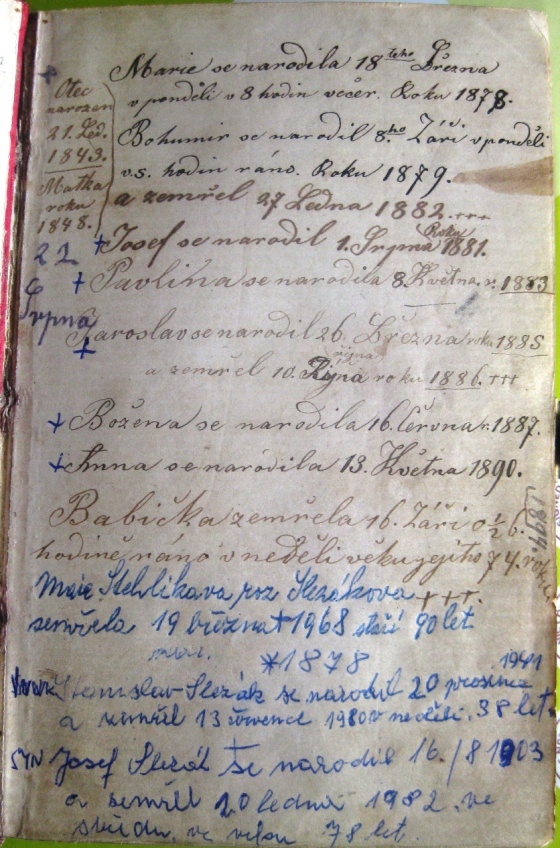 Otec
narozen
21. Led.
1843.
Matka
roku
1848.
22
6
Srpna
Marie se narodila 18teho Března
v pondělí v 8 hodin večer. Roku 1878.
Bohumir se narodil 8.ho Září. v pondělí
v.s. hodin ráno. Roku 1879.
a zemřel 27 Ledna 1882. +++
Roku
+ Josef se narodil 1. Srpna 1881.
+ Pavlína se narodila 8. Května. r. 1883
Jaroslav se narodil 26. Března roku 1885
+
října
a zemřel 10. Října roku 1886. +++
+ Božena se narodila 16. Června r. 1887.
+ Anna se narodila 13. Května 1890.
Babička zemřela 16. Září o ½ 6.
1894.
hodině ráno v neděli věku jejího 74. roku
+++.
Marie Stehlikava roz Slezákova
semřela 19 března + 1968 stáří 90 let
*1878
1941
Stanislav Slezák se narodil 20 prosince
a zemřel 13 července 1980 v neděli. 38 let.
SYN Josef Slezák se narodil 16./8 1903
+
a semřel 20 ledna 1982. ve
středu, ve věku 78 let.